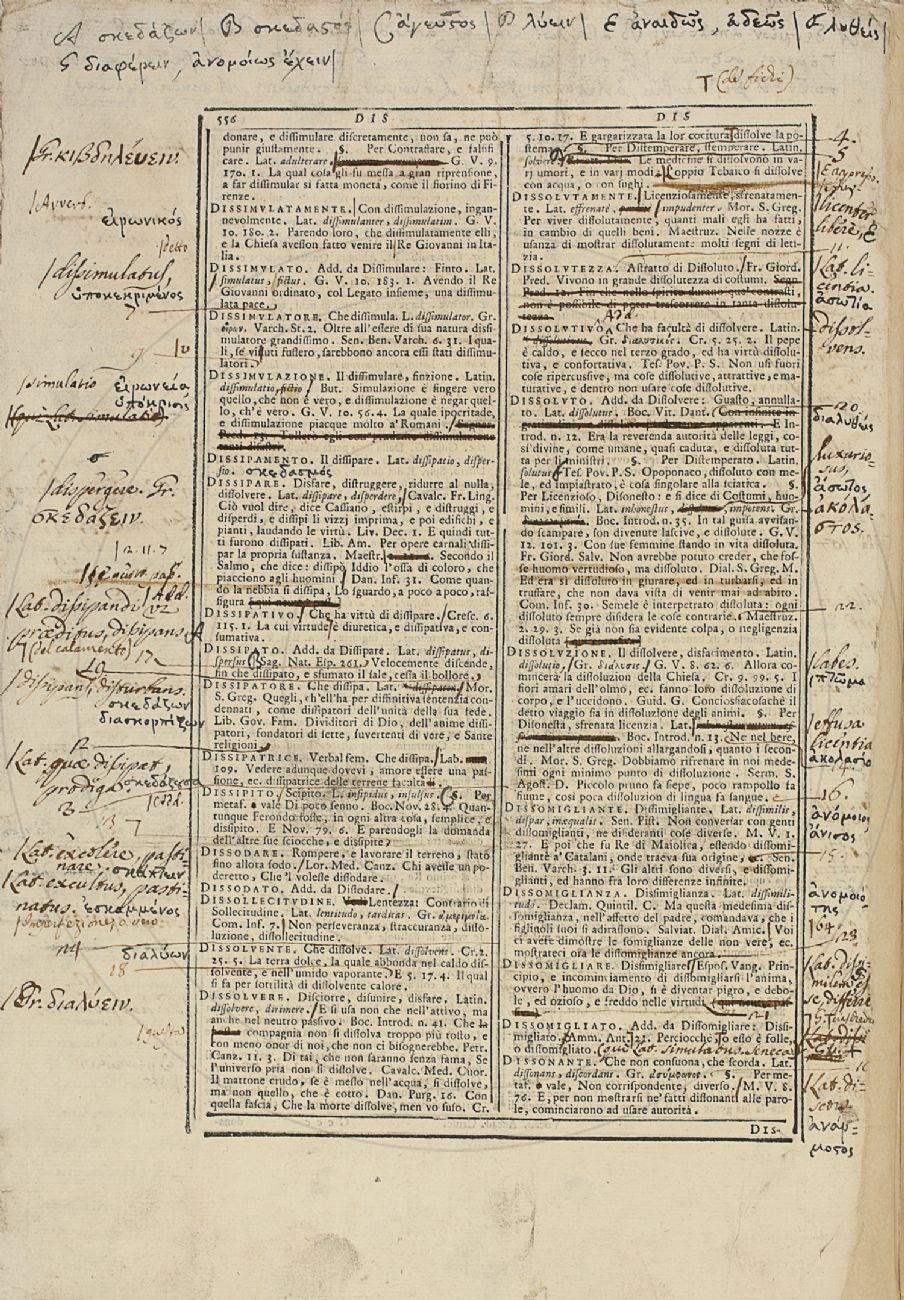 A σκεδάζων| B σκεδαστὸς| C ἄγευστος| D λύειν| E ἀναιδῶς, ἀδεῶς| F λυθείς|
G διαφέρειν, ἀνομοίως ἔχειν|
T (de fichi)
556 DIS DIS
donare, e dissimulare discretamente, non sa, ne può
punir giustamente. §. Per Contraffare, e falsifi
care. Lat. adulterare. G. V. 9.
170. 1. La qual cosa gli fu messa a gran riprensione,
a far dissimular si fatta moneta, come il fiorino di Fi-
renze.
DISSIMULATAMENTE. Con dissimulazione, ingan-
nevolmente. Lat. dissimulanter, dissimulatim. G. V.
10. 180. 2. Parendo loro, che dissimulatamente elli,
e la Chiesa avesson fatto venire il Re Giovanni in Ita-
lia.
DISSIMULATO. Add. da Dissimulare: Finto. Lat.
simulatus, fictus. G. V. 10. 183. 1. Avendo il Re
Giovanni ordinato, col Legato insieme, una dissimu-
lata pace.
DISSIMULATORE. Che dissimula. L. dissimulator. Gr.
εἴρων. Varch. St. 2. Oltre all'essere di sua natura dissi-
mulatore grandissimo. Sen. Ben. Varch. 6. 31. I qua-
li, se vissuti fussero, sarebbono ancora essi stati dissimu-
latori.
DISSIMULAZIONE. Il dissimulare, finzione. Latin.
dissimulatio, fictio. But. Simulazione è fingere vero
quello, che non è vero, e dissimulazione è negar quel-
lo, ch'è vero. G. V. 10. 56. 4. La quale ipocritade,
e dissimulazione piacque molto a' Romani.
DISSIPAMENTO. Il dissipare. Lat. dissipatio, disper-
sio. σκεδασμός
DISSIPARE. Disfare, distruggere, ridurre al nulla,
dissolvere. Lat. dissipare, disperdere. Cavalc. Fr. Ling.
Ciò vuol dire, dice Cassiano, estirpi, e distruggi, e
disperdi, e dissipi li vizzj imprima, e poi edifichi, e
pianti, laudando le virtù. Liv. Dec. 1. E quindi tut-
ti furono dissipati. Lib. Am. Per opere carnali dissi-
par la propria sustanza. Maestr. Secondo il
Salmo, che dice: dissipò Iddio l'ossa di coloro, che
piacciono agli huomini. Dan. Inf. 31. Come quan-
do la nebbia si dissipa, Lo sguardo, a poco a poco, raf-
figura
DISSIPATIVO. Che ha virtù di dissipare. Cresc. 6.
115. 1. La cui virtude è diuretica, e dissipativa, e con-
sumativa.
DISSIPATO. Add. da Dissipare. Lat. dissipatus, di-
spersus. Sag. Nat. Esp. 261. Velocemente discende,
fin che dissipato, e sfumato il sale, cessa il bollore.
DISSIPATORE. Che dissipa. Lat. dissipator. Mor.
S. Greg. Quegli, ch'ell'ha per diffinitiva sentenzia con-
dennati, come dissipatori dell'unità della sua fede.
Lib. Gov. Fam. Dividitori di Dio, dell'anime dissi-
patori, fondatori di sette, suvertenti di vere, e Sante
religioni.
DISSIPATRICE. Verbal fem. Che dissipa. Lab.
109. Vedere adunque dovevi, amore essere una pas-
sione, ec. dissipatrice delle terrene facultà.
DISSIPITO. Scipito. L. insipidus, insulsus. §. Per
metaf. vale Di poco senno. Boc. Nov. 28. 4. Quan-
tunque Ferondo fosse, in ogni altra cosa, semplice, e
dissipito. E Nov. 79. 6. E parendogli la domanda
dell'altre sue sciocche, e dissipite.
DISSODARE. Rompere, e lavorare il terreno, stato
fino allora sodo. Lor. Med. Canz. Chi avesse un po-
deretto, Che 'l volesse dissodare.
DISSODATO. Add. da Dissodare.
DISSOLLECITUDINE. Lentezza: Contrario di
Sollecitudine. Lat. lentitudo, tarditas. Gr. ἀμεριμνία.
Com. Inf. 7. Non perseveranza, straccuranza, disso-
luzione, dissollecitudine.
DISSOLVENTE. Che dissolve. Lat. dissolvens. Cr. 2.
25. 5. La terra dolce, la quale abbonda nel caldo dis-
solvente, e nell'umido vaporante. E 5. 17. 4. Il qual
si fa per sottilità di dissolvente calore.
DISSOLVERE. Disciorre, disunire, disfare. Latin.
dissolvere, dirimere. E si usa non che nell'attivo, ma
anche nel neutro passivo. Boc. Introd. n. 41. Che la
compagnia non si dissolva troppo più tosto, e
con meno onor di noi, che non ci bisognerebbe. Petr.
Canz. 11. 3. Di tai, che non saranno senza fama, Se
l'universo pria non si dissolve. Cavalc. Med. Cuor.
Il mattone crudo, se è messo nell'acqua, si dissolve,
ma non quello, che è cotto. Dan. Purg. 16. Con
quella fascia, Che la morte dissolve, men vo suso. Cr.
5. 10. 17. E gargarizzata la lor cocitura dissolve la po-
stema. §. Per Distemperare, stemperare. Latin.
solvere. Le medicine si dissolvono in va-
rj umori, e in varj modi. L'oppio Tebaico si dissolve
con acqua, o con sughi.
DISSOLUTAMENTE. Licenziosamente, sfrenatamen-
te. Lat. effrenate, impudenter. Mor. S. Greg.
Per viver dissolutamente, quanti mali egsi ha fatti,
in cambio di quelli beni. Maestruz. Nelle nozze è
usanza di mostrar dissolutamente molti segni di leti-
zia.
DISSOLUTEZZA. Astratto di Dissoluto. Fr. Giord.
Pred. Vivono in grande dissolutezza di costumi.
DISSOLUTIVO. Add. Che ha facultà di dissolvere. Latin.
Gr. διαλυτικός. Cr. 5. 25. 2. Il pepe
è caldo, e secco nel terzo grado, ed ha virtù dissolu-
tiva, e confortativa. Tes. Pov. P. S. Non usi fuori
cose ripercussive, ma cose dissolutive, attrattive, e ma-
turative, e dentro non usare cose dissolutive.
DISSOLUTO. Add. da Dissolvere: Guasto, annulla-
to. Lat. dissolutus. Boc. Vit. Dant. E In-
trod. n. 12. Era la reverenda autorità delle leggi, co-
sì divine, come umane, quasi caduta, e dissoluta tut-
ta per li ministri. §. Per Distemperato. Latin.
solutus. Tes. Pov. P. S. Opoponaco, dissoluto con me-
le, ed impiastrato, è cosa singulare alla sciatica. §.
Per Licenzioso, Disonesto: e si dice di Costumi, huo-
mini, e simili. Lat. inhonestus, impotens. Gr.
Boc. Introd. n. 35. In tal guisa avvisan-
do scampare, son divenute lascive, e dissolute. G. V.
12. 101. 3. Con sue femmine stando in vita dissoluta.
Fr. Giord. Salv. Non avrebbe potuto creder, che fos-
se huomo vertudioso, ma dissoluto. Dial. S. Greg. M.
Ed era sì dissoluto in giurare, ed in turbarsi, ed in
truffare, che non dava vista di venir mai ad abito.
Com. Inf. 30. Semele è interpetrato dissoluta: ogni
dissoluto sempre disidera le cose contrarie. Maestruz.
2. 29. 3. Se già non sia evidente colpa, o negligenzia
dissoluta
DISSOLUZIONE. Il dissolvere, disfacimento. Latin.
dissolutio. Gr. διάλυσις. G. V. 8. 62. 6. Allora co-
mincerà la dissoluzion della Chiesa. Cr. 9. 99. 5. I
fiori amari dell'olmo, ec. fanno loro dissoluzione di
corpo, e l'uccidono. Guid. G. Conciossiacosachè il
detto viaggio sia in dissoluzione degli animi. §. Per
Disonesta, sfrenata licenzia. Lat.
Boc. Introd. n. 13. Ne nel bere,
ne nell'altre dissoluzioni allargandosi, quanto i secon-
di. Mor. S. Greg. Dobbiamo rifrenare in noi mede-
simi ogni minimo punto di dissoluzione. Serm. S.
Agost. D. Piccolo pruno fa siepe, poco rampollo fa
fiume, così poca dissoluzion di lingua fa sangue.
DISSOMIGLIANTE. Dissimigliante. Lat. dissimilis,
dispar, inæqualis. Sen. Pist. Non conversar con genti
dissomiglianti, ne disideranti cose diverse. M. V. 1.
27. E poi che fu Re di Maiolica, essendo dissomi-
gliante a' Catalani, onde traeva sua origine, ec. Sen.
Ben. Varch. 3. 11. Gli altri sono diversi, e dissomi-
glianti, ed hanno fra loro differenze infinite.
DISSOMIGLIANZA. Dissimiglianza. Lat. dissimili-
tudo. Declam. Quintil. C. Ma questa medesima dis-
somiglianza, nell'affetto del padre, comandava, che i
figliuoli suoi si adirassono. Salviat. Dial. Amic. Voi
ci avete dimostre le somiglianze delle non vere, ec.
mostrateci ora le dissomiglianze ancora.
DISSOMIGLIARE. Dissimigliare. Espos. Vang. Prin-
cipio, e incominciamento di dissomigliarsi l'anima,
ovvero l'huomo da Dio, si è diventar pigro, e debo-
le, ed ozioso, e freddo nelle virtudi.
DISSOMIGLIATO. Add. da Dissomigliare: Dissi-
migliato. Amm. Ant. Perciocchè, Io esso è folle,
o dissomigliato
DISSONANTE. Che non consuona, che scorda. Lat.
dissonans, discordans. Gr. ἀσύμφωνος. §. Per me-
taf. vale, Non corrispondente, diverso. M. V. 8.
76. E, per non mostrarsi ne' fatti dissonanti alle paro-
le, cominciarono ad usare autorità.
DIS-
Gr. κιβδηλέυειν.
Avverb.
εἰρωνικός
detto
dissimulatus,
ὑποκεκριμένος
simulatio εἰρωνεία
ὑπόκρισις
dispergere. Gr.
σκεδάζειν.
2. 11. 7
Lat. dissipandi
dissipans, disturbans.
σκεδάζων
διασκορπίζων
Lat. quæ dissipat,
prodiga σκεδάζουσα
Lat. excolere, pasti-
nare. σκάπτων
Lat. excultus, pasti-
natus. ἐσκαμμένος
διαλύων
18
Gr. διαλύειν.
questo
4.
5
licenter
libere, E
11
Lat. li-
centia
ἀσωτία
dissol-
vens.
20
διαλυθείς
luxurio-
sus,
ἄσωτος
ἀκόλα-
στος.
22.
labes.
πτῶμα
effusa
licentia
ἀκολασία
16.
ἀνόμοιος
ἄνισος
15.
ἀνομοιό
της
23
Lat. dissi-
milem es
se, differre
Lat. di-
scors
ἀνάρ-
μοστος